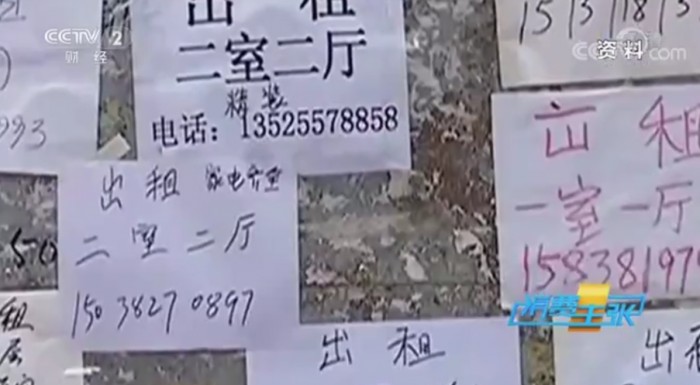 CCTV 2
财经
资料
CCTV.com
出 租
二室二厅
精装
电话：13525578858
993
出 租 家电齐全
二 室 二 厅
150 3827 0897
出 租
一室一厅
1583819
消费主张
租
出 租
出